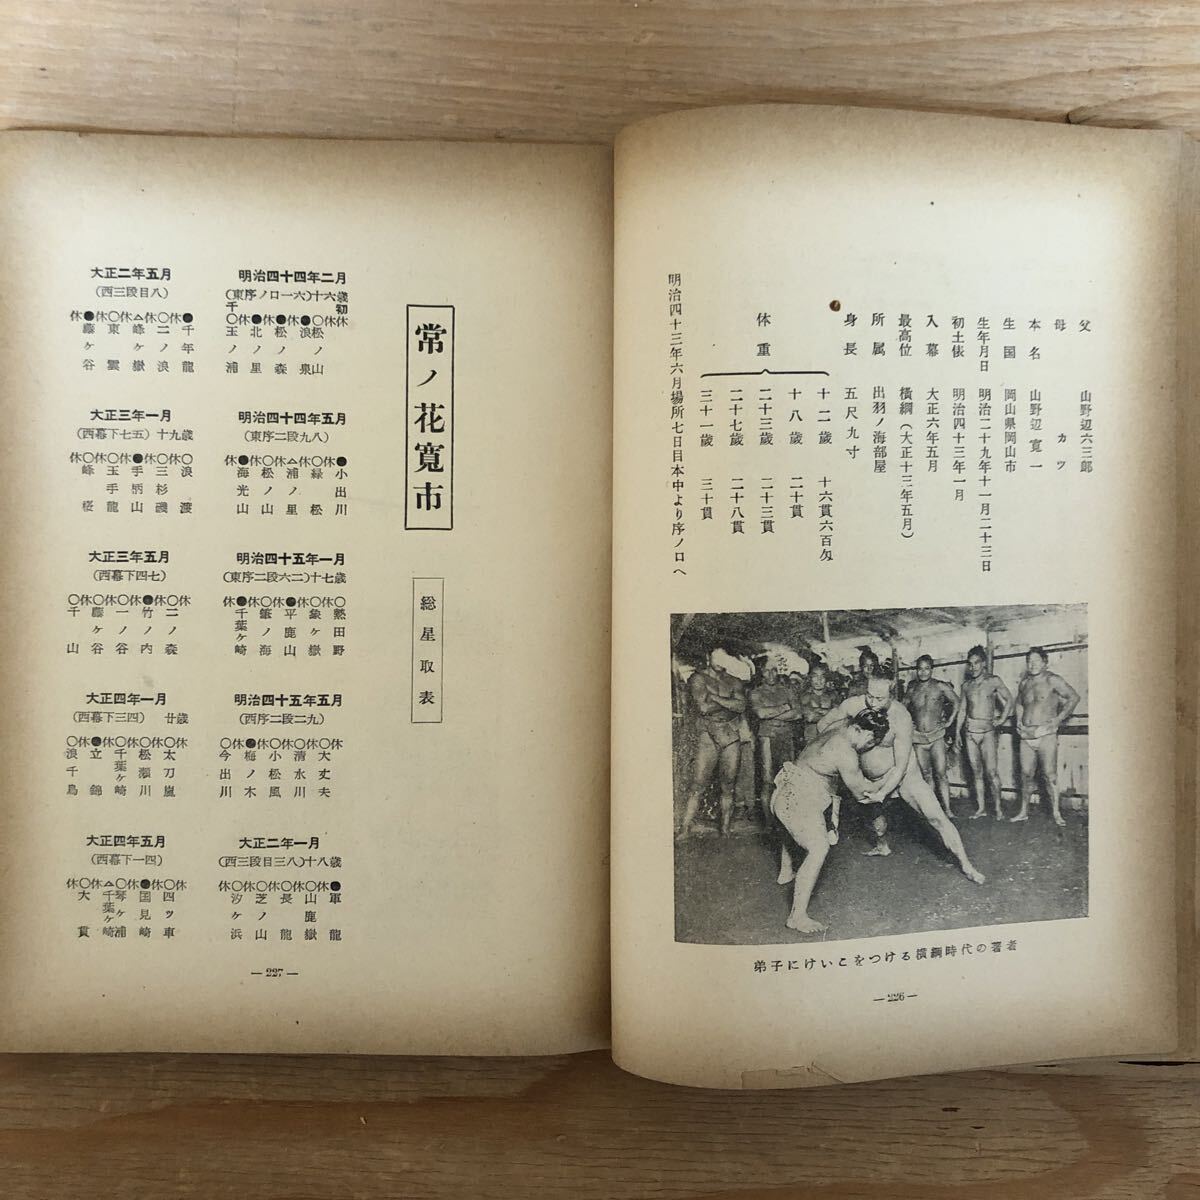 父　山野辺六三郎
母　カツ
本名　山野辺寛一
生国　岡山県岡山市
生年月日　明治二十九年十一月二十三日
初土俵　明治四十三年一月
入幕　大正六年五月
最高位　横綱（大正十三年五月）
所属　出羽ノ海部屋
身長　五尺九寸
体重
十二歳　十六貫六百匁
十八歳　二十貫
二十三歳　二十三貫
二十七歳　二十八貫
三十一歳　三十貫
明治四十三年六月場所七日目本中より序ノ口へ
弟子にけいこをつける横綱時代の著者
―226―
常ノ花寛市
総星取表
明治四十四年二月
(東序ノ口一六)十六歳
○休●休●休●○休休
千玉
北ノ里
松ノ森
浪ノ泉
初松ノ山
明治四十四年五月
(東序二段九八)
休●休○休△休○休●
海光山
松ノ山
浦ノ里
緑松
小出川
明治四十五年一月
(東序二段六二)十七歳
休●休○休●休○休○
千葉ケ崎
筆ノ海
平鹿山
象ケ嶽
熱田野
明治四十五年五月
(西序二段二九)
○休●休○休○休○休
今出川
梅ノ木
小松風
清水川
大丈夫
大正二年一月
(西三段目三八)十八歳
休○休○休○休○休●
汐ケ浜
芝ノ山
長龍
山鹿嶽
軍龍
大正二年五月
(西三段目八)
休●休○休△休○休●
藤ケ谷
東雲
峰ケ嶽
二ノ浪
千年龍
大正三年一月
(西幕下七五)十九歳
休○休○休●休○休○
峰桜
玉手龍
手柄山
三杉磯
浪渡
大正三年五月
(西幕下四七)
○休○休○休●休○休
千山
藤ケ谷
一ノ谷
竹ノ内
二ノ森
大正四年一月
(西幕下三四)　廿歳
○休●休○休○休○休
浪千鳥
立錦
千葉ケ崎
松瀬川
太刀嵐
大正四年五月
(西幕下一四)
休○休△○休●休○休
大貫
千葉ケ崎
琴ケ浦
国見崎
四ツ車
―227―